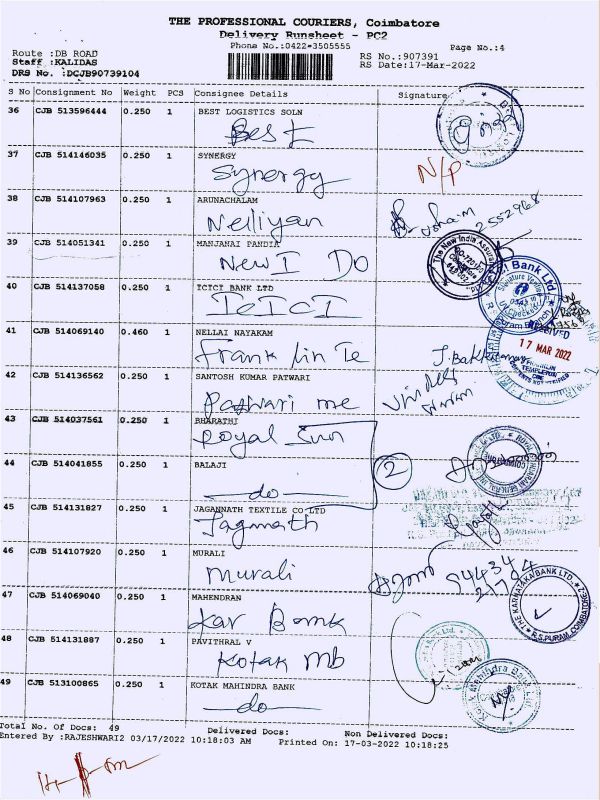 THE PROFESSIONAL COURIERS, Coimbatore
Delivery Runsheet - PC2
Phone No.:0422-3505555
Page No.:4
Route :DB ROAD
Staff :KALIDAS
DRS No. :DCJB90739104
RS No.:907391
RS Date:17-Mar-2022
S No Consignment No Weight PCS Consignee Details Signature
36 CJB 513596444 0.250 1 BEST LOGISTICS SOLN
Best
37 CJB 514146035 0.250 1 SYNERGY
Synergy N/P
38 CJB 514107963 0.250 1 ARUNACHALAM
Nelliyan
2552968
39 CJB 514051341 0.250 1 MANJANAI PANDIA
New I Do
The New India Assura
40 CJB 514137058 0.250 1 ICICI BANK LTD
ICICI
I Bank Ltd
RECEIVED
17 MAR 2022
41 CJB 514069140 0.460 1 NELLAI NAYAKAM
Franklin Te
FRANKLIN
TEMPLETON
42 CJB 514136562 0.250 1 SANTOSH KUMAR PATWARI
Patwari me
43 CJB 514037561 0.250 1 BHARATHI
Royal Sun
44 CJB 514041855 0.250 1 BALAJI
do
2
45 CJB 514131827 0.250 1 JAGANNATH TEXTILE CO LTD
Jagnnath
46 CJB 514107920 0.250 1 MURALI
Murali
94434
47 CJB 514069040 0.250 1 MAHENDRAN
Kar Bank
THE KARNATAKA BANK LTD.
R.S.PURAM, COIMBATORE
48 CJB 514131887 0.250 1 PAVITHRAL V
Kotak Mb
49 CJB 513100865 0.250 1 KOTAK MAHINDRA BANK
do
Total No. Of Docs: 49 Delivered Docs: Non Delivered Docs:
Entered By :RAJESHWARI2 03/17/2022 10:18:03 AM Printed On: 17-03-2022 10:18:25